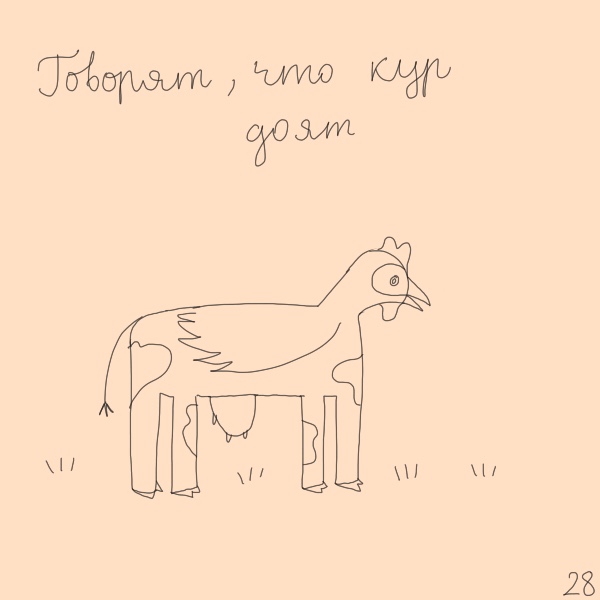 Говорят, что кур
доят
28